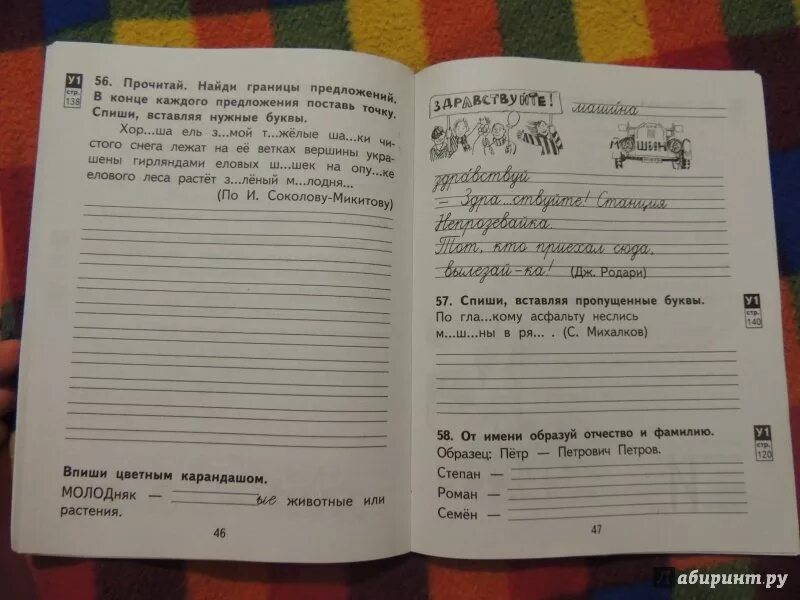 У1
стр.
138
56. Прочитай. Найди границы предложений.
В конце каждого предложения поставь точку.
Спиши, вставляя нужные буквы.
Хор...ша ель з...мой т...жёлые ша...ки чи-
стого снега лежат на её ветках вершины укра-
шены гирляндами еловых ш...шек на опу...ке
елового леса растёт з...лёный м...лодня...
(По И. Соколову-Микитову)
Впиши цветным карандашом.
МОЛОДняк — ые животные или
растения.
46
ЗДРАВСТВУЙТЕ!
машина
М ШИН
здравствуй
— Здра...ствуйте! Станция
Непрозевайка.
Тот, кто приехал сюда,
вылезай-ка! (Дж. Родари)
57. Спиши, вставляя пропущенные буквы.
У1
стр.
140
По гла...кому асфальту неслись
м...ш...ны в ря... . (С. Михалков)
58. От имени образуй отчество и фамилию.
У1
стр.
120
Образец: Пётр — Петрович Петров.
Степан —
Роман —
Семён —
47
Лабиринт.ру